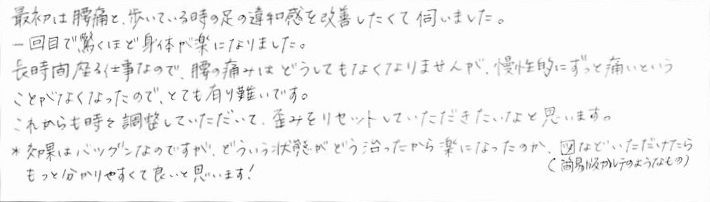 最初は腰痛と、歩いている時の足の違和感を改善したくて伺いました。
一回目で驚くほど身体が楽になりました。
長時間座る仕事なので、腰の痛みはどうしてもなくなりませんが、慢性的にずっと痛いという
ことがなくなったので、とても有り難いです。
これからも時々調整していただいて、歪みをリセットしていただきたいなと思います。
*効果はバツグンなのですが、どういう状態がどう治ったから楽になったのか、図などいただけたら
(簡易版カルテのようなもの)
もっと分かりやすくて良いと思います!